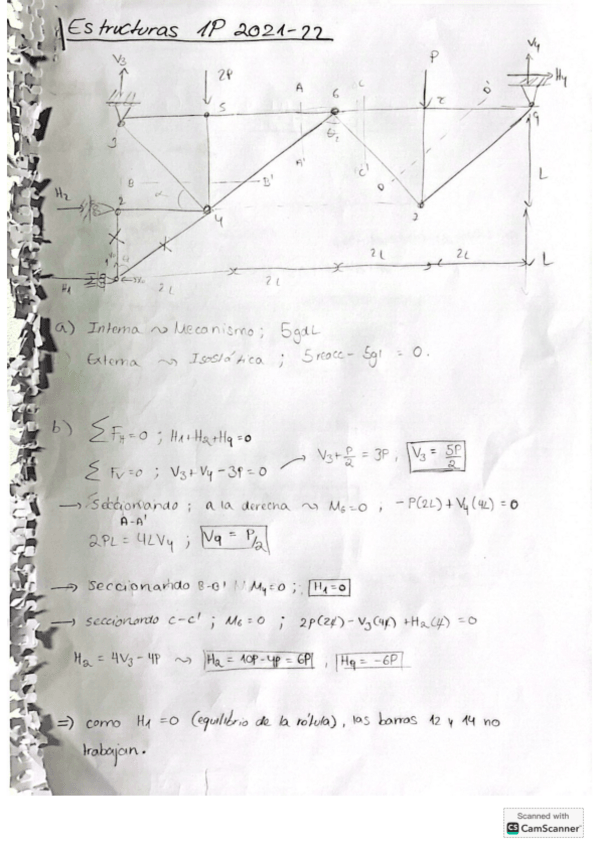 Estructuras 1P 2021-22
V3
2P
P
V4
H4
A
C
6
D'
3
5
9
B
B'
A'
C'
D
L
H2
2
α
4
H1
2L
2L
2L
2L
L
a) Interna ~> Mecanismo; 5gdL
Externa ~> Isostática; 5reacc - 5gl = 0.
b) ∑FH=0 ; H1+H2+H9=0
∑FV=0 ; V3+V4-3P=0 → V3+P/2 = 3P, V3 = 5P/2
→ Seccionando ; a la derecha ~> M6=0 , -P(2L)+V4(4L)=0
A-A'
2PL = 4LV4 ; V9 = P/2
→ seccionando B-B' // M4=0 ; H1=0
→ seccionando c-c' ; M6=0 ; 2P(2L)-V3(4L)+H2(L)=0
H2 = 4V3-4P ~> H2 = 10P-4P = 6P , H9 = -6P
=) como H1=0 (equilibrio de la rótula), las barras 12 y 14 no
trabajan.
Scanned with
CS CamScanner